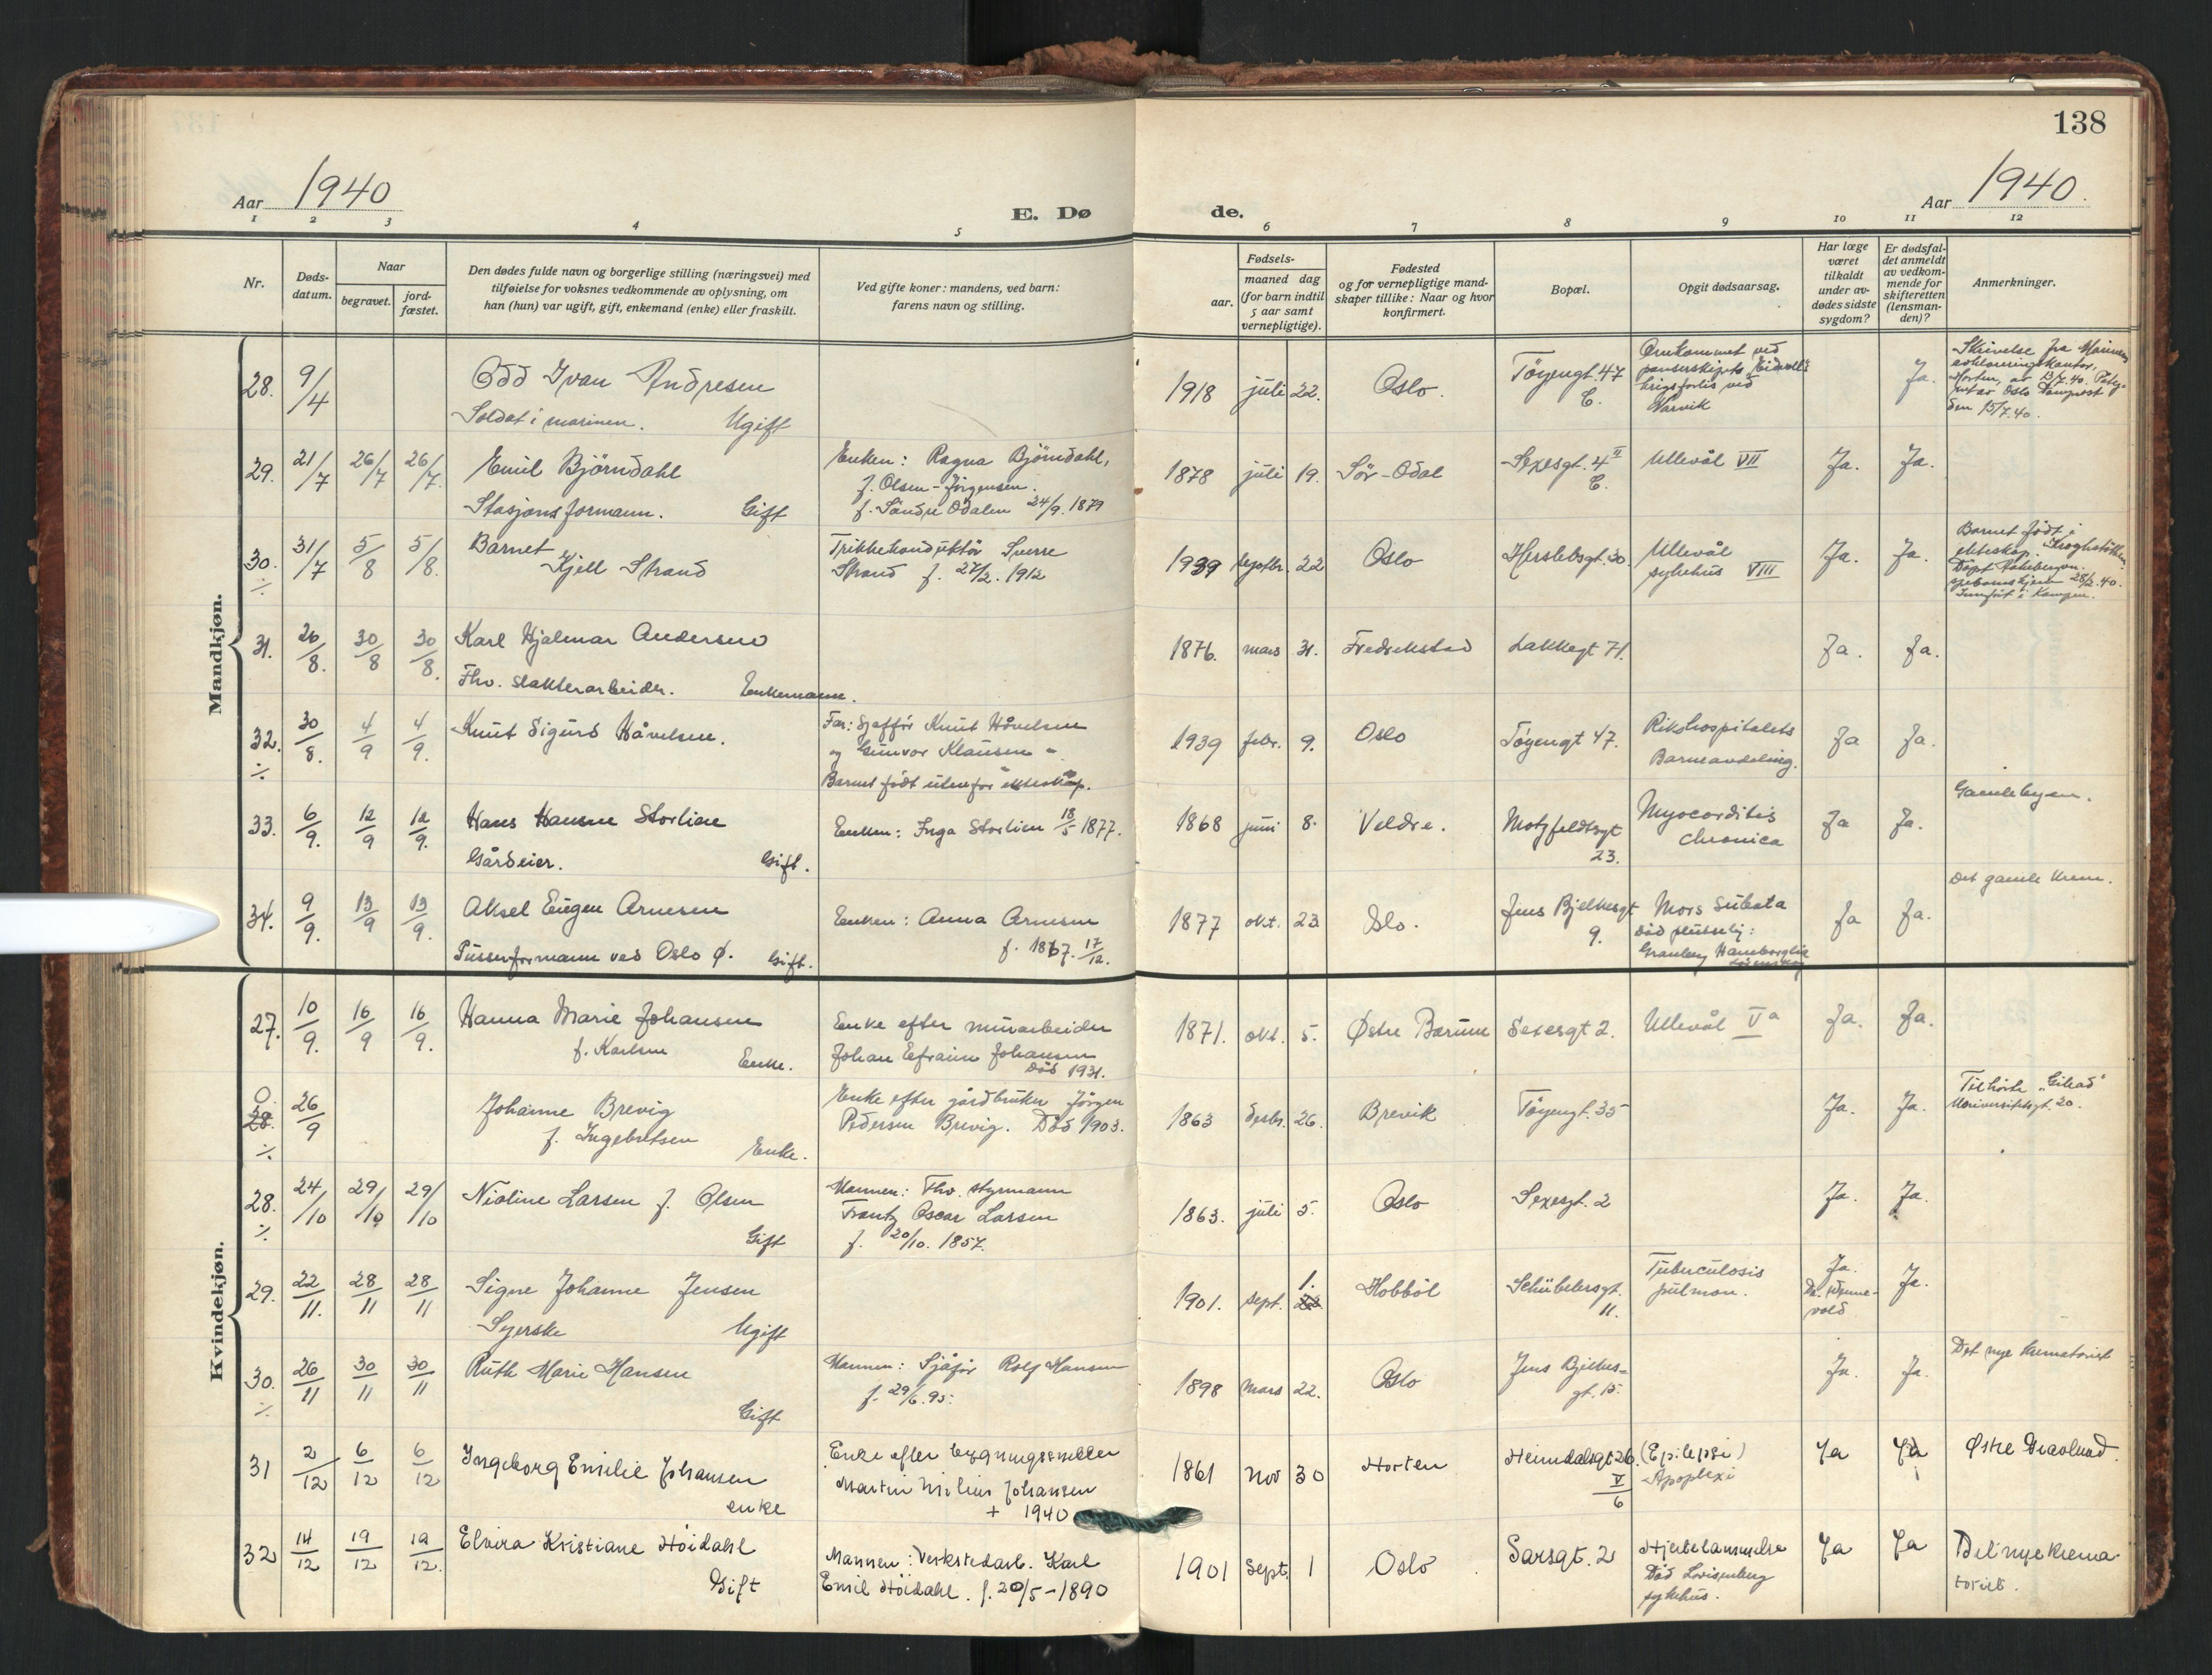 138
Aar 1940
E. Døde.
Aar 1940.
1 2 3 4 5 6 7 8 9 10 11 12
Nr.
Døds-
datum.
Naar
begravet.
jord-
fæstet.
Den dødes fulde navn og borgerlige stilling (næringsvei) med
tilføielse for voksnes vedkommende av oplysning, om
han (hun) var ugift, gift, enkemand (enke) eller fraskilt.
Ved gifte koner: mandens, ved barn:
farens navn og stilling.
Fødsels-
aar.
maaned dag
(for barn indtil
5 aar samt
vernepligtige).
Fødested
og for vernepligtige mand-
skaper tillike: Naar og hvor
konfirmert.
Bopæl.
Opgit dødsaarsag.
Har læge
været
tilkaldt
under av-
dødes sidste
sygdom?
Er dødsfal-
det anmeldt
av vedkom-
mende for
skifteretten
(lensman-
den)?
Anmerkninger.
Mandkjøn.
28. 9/4 Odd Ivan Andresen
Soldat i marinen. Ugift
1918 juli 22. Oslo. Töyengt. 47
C.
Omkommet ved
panserskipets "Eidsvoll"s
krigsforlis ved
Narvik
Ja.
Skrivelse fra Marinens
Horten, av 13/7.40.
den 15/7.40.
29. 21/7 26/7 26/7. Emil Björndahl
Stasjonsformann. Gift
Enken: Ragna Björndahl,
f. Olsen-Jörgensen.
f. Söndre Odalen 24/9. 1879
1878 juli 19. Sör-Odal Sexesgt. 4 II
C.
Ullevål VII Ja. Ja.
30. ÷ 31/7 5/8 5/8. Barnet
Kjell Strand
Trikkekonduktör Sverre
Strand f. 27/2. 1912
1939 septbr. 22 Oslo Herslebsgt. 30. Ullevål
sykehus VIII
Ja. Ja.
Barnet födt i
ekteskap.
Döpt
28/2.40.
Innfört i Kampen.
31. 26/8. 30/8 30/8. Karl Hjalmar Andersen
Fhv. slakterarbeider. Enkemann.
1876. mars 31. Fredrikstad Lakkegt 71. Ja. Ja.
32. ÷ 30/8. 4/9 4/9. Knut Sigurd Håvelsen.
Far: Sjafför Knut Håvelsen
og Gunvor Klausen
Barnet födt utenfor ekteskap.
1939 febr. 9. Oslo Töyengt 47. Rikshospitalets
Barneavdeling.
Ja Ja.
33. 6/9. 12/9 12/9. Hans Hansen Storlien
Gårdeier. Gift.
Enken: Inga Storlien 18/5 1877.
1868 juni 8. Veldre. Motzfeldtsgt
23.
Myocorditis
chronica
Ja Ja. Gamlebyen.
34. 9/9. 13/9 13/9. Aksel Eugen Arnesen
Pusserformann ved Oslo Ø. Gift.
Enken: Anna Arnesen
f. 1867. 17/12.
1877 okt. 23 Oslo. Jens Bjelkesgt
9.
Mors Subata
död plutselig:
Ja Ja. Det gamle Krem.
Kvindekjøn.
27. 10/9. 16/9 16/9. Hanna Marie Johansen
f. Karlsen Enke.
Enke efter murarbeider
Johan Efraim Johansen
död 1931.
1871. okt. 5. Østre Bærum Sexesgt 2. Ullevål Va Ja. Ja.
0 28. ÷ 26/9 Johanne Brevig
f. Ingebretsen Enke.
Enke efter gårdbruker Jörgen
Pedersen Brevig. Död 1903.
1863 desbr. 26. Brevik Töyengt. 35 Ja. Ja.
Tilhörte "Gilead"
Universitetsgt. 20.
28. ÷ 24/10 29/10 29/10 Nioline Larsen f. Olsen
Gift
Mannen: Fhv. styrmann
Frantz Oscar Larsen
f. 20/10. 1857.
1863. juli 5. Oslo Sexesgt. 2 Ja. Ja.
29. 22/11. 28/11 28/11 Signe Johanne Jensen
Syerske Ugift
1901. sept. 1. Hobböl Schübelersgt.
11.
Tuberculosis
pulmon.
Ja.
Ja.
30. ÷ 26/11 30/11 30/11 Ruth Marie Hansen
Gift
Mannen: Sjåför Rolf Hansen
f. 29/6.95.
1898 mars 22. Oslo Jens Bjelkes-
gt. 15.
Ja. Ja. Det nye krematoriet
31 2/12 6/12 6/12 Ingeborg Emilie Johansen
enke
Enke efter bygningssnekker
Martin Nilius Johansen
+ 1940
1861 nov 30 Horten Heimdalsgt 26.
V/6
(Epilepsi)
Apoplexi
Ja Ja Østre Gravlund.
32 14/12 19/12 19/12. Elvira Kristiane Höidahl
Gift
Mannen: Verkstedarb. Karl
Emil Höidahl. f. 20/5-1890
1901 sept. 1 Oslo Sarsgt. 2 Hjertelammelse
Död Lovisenberg
sykehus.
Ja Ja Det nye krema-
toriet.